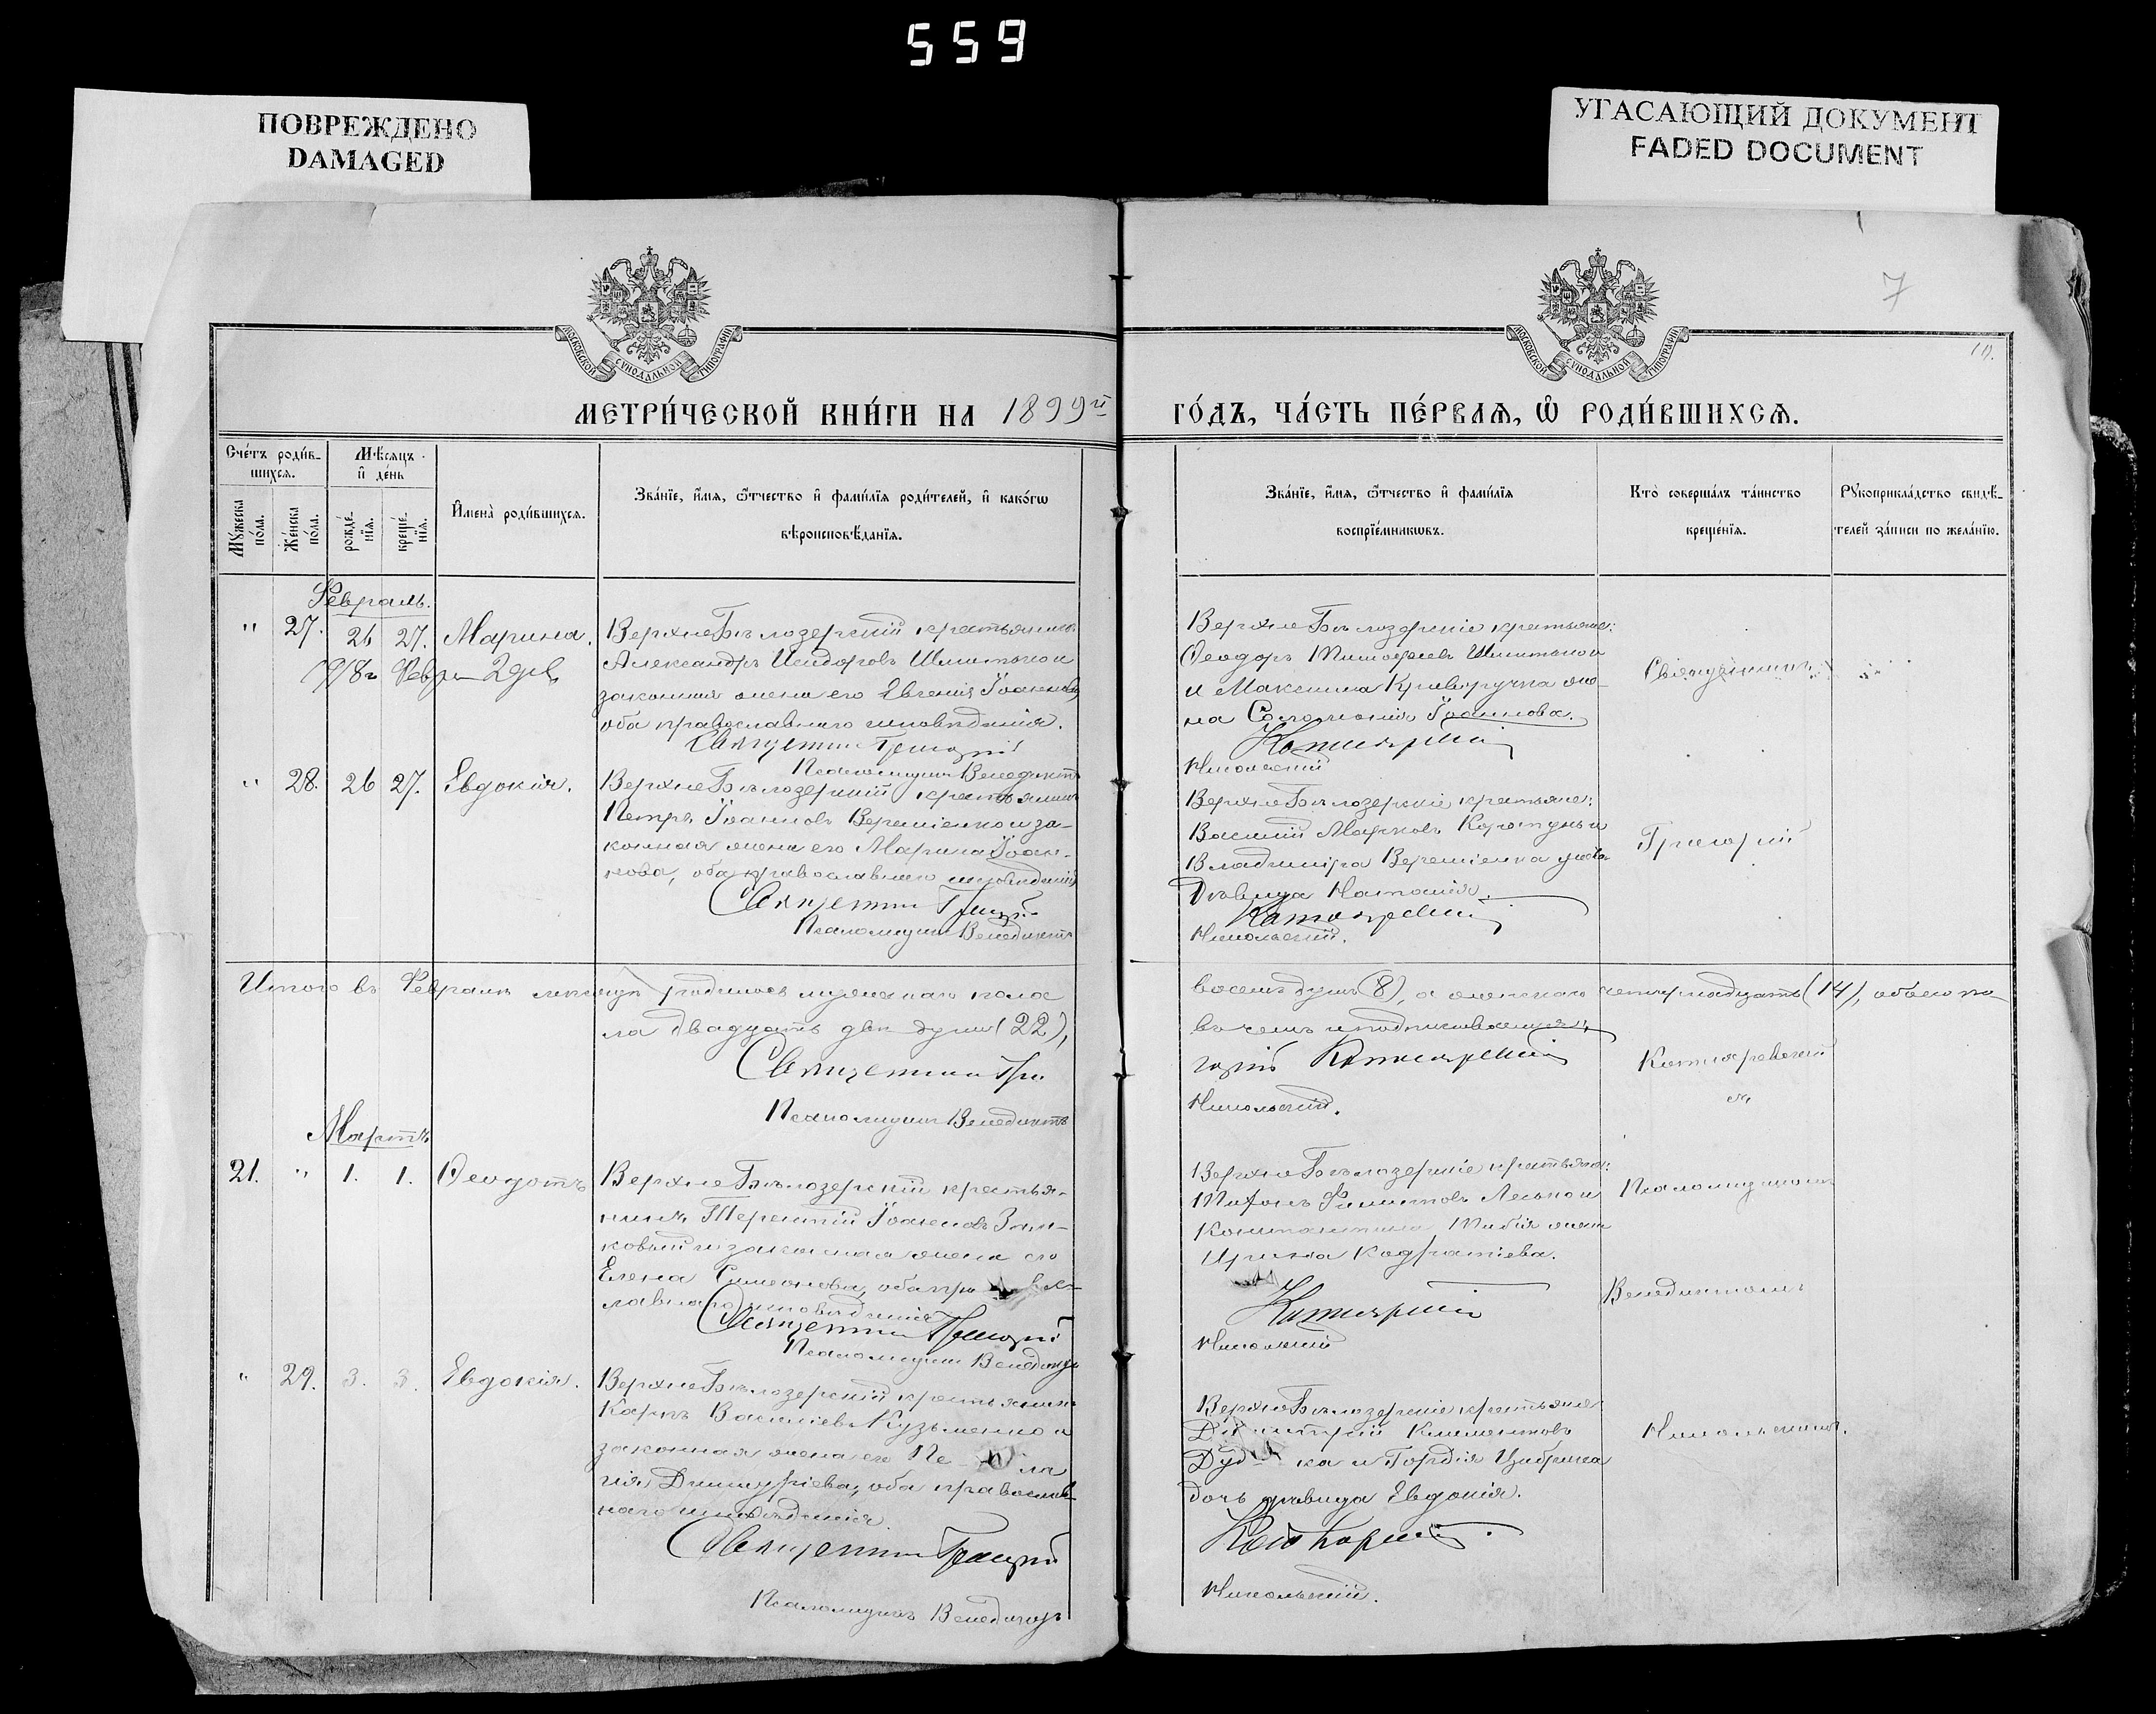 559
ПОВРЕЖДЕНО
DAMAGED
УГАСАЮЩИЙ ДОКУМЕНТ
FADED DOCUMENT
7
МОСКОВСКОЙ СУНОДАЛЬНОЙ ТИПОГРАФІИ
МОСКОВСКОЙ СУНОДАЛЬНОЙ ТИПОГРАФІИ
МЕТРИ́ЧЕСКОЙ КНИ́ГИ НА 1899й
ГО́ДЪ, ЧА́СТЬ ПЕ́РВАѦ, Ѽ РОДИ́ВШИХСѦ.
Сче́тъ роди́в-
шихсѧ.
Мѣ́сѧцъ
и҆ де́нь
Мꙋ́жеска по́ла.
Же́нска по́ла.
рожде́-нїѧ.
креще́-нїѧ.
И҆мена̀ роди́вшихсѧ.
Зва́нїе, и҆́мѧ, ѻ҆́тчество и҆ фами́лїѧ роди́телей, и҆ како́гѡ
вѣроисповѣ́данїѧ.
Зва́нїе, и҆́мѧ, ѻ҆́тчество и҆ фами́лїѧ
воспрїе́мникѡвъ.
Кто̀ соверша́лъ та́инство
креще́нїѧ.
Рꙋкоприкла́дство свидѣ́-
телей за́писи по жела́нїю.
Февраль.
" 27. 26 27. Марина.
Верхне Бѣлозерскій крестьянинъ
Александръ Исидоровъ и
законная жена его Евгенія Іоаннова
оба православнаго исповѣданія.
Священникъ Григорій
Псаломщикъ Венедиктъ
Верхне Бѣлозерскіе крестьяне:
Ѳеодоръ Тимоѳеевъ и
и Максима Криворучка же-
на Соломонія Іоаннова.
Котляревскій
Никольскій
Священникъ
" 28. 26 27. Евдокія.
Верхне Бѣлозерскій крестьянинъ
Петръ Іоанновъ Веремѣенко и за-
конная жена его Марина Іоан-
нова, оба православнаго исповѣданія
Священникъ Григорій
Псаломщикъ Венедиктъ
Верхне Бѣлозерскіе крестьяне:
Василій Марковъ и
Владиміра Веремѣенка
дѣвица Наталія.
Котляревскій
Никольскій.
Григорій
Итого въ Февралѣ мѣсяцѣ родилось мужескаго пола
восемь душъ (8), а женскаго четырнадцать (14), обоего по-
ла двадцать двѣ души (22),
въ чемъ и подписываемся:
Священникъ Гри
горій Котляревскій
Котляревскій
и
Псаломщикъ Венедиктъ
Никольскій.
Мартъ
21. " 1. 1. Ѳеодотъ
Верхне Бѣлозерскій крестья-
нинъ Терентій Іоанновъ Зин-
ковый и законная жена его
Елена Симеонова, оба право-
славнаго исповѣданія
Священникъ Григорій
Псаломщикъ Венедиктъ
Верхне Бѣлозерскіе крестьяне:
Филиповъ и
Константина жена
Ирина Кодратіева.
Котляревскій
Никольскій
Псаломщикомъ
Венедиктомъ
" 29. 3. 3. Евдокія.
Верхне Бѣлозерскій крестьянинъ
Карпъ Василіевъ Кузьменко и
законная жена его Пе ла
гія Димитріева, оба православ-
наго исповѣданія
Священникъ Григорій
Псаломщикъ Венедиктъ
Верхне Бѣлозерскіе крестьяне
Димитрій Климентовъ
Дуд ка и Гордія
дочь дѣвица Евдокія.
Котляревскій.
Никольскій.
Никольскимъ.